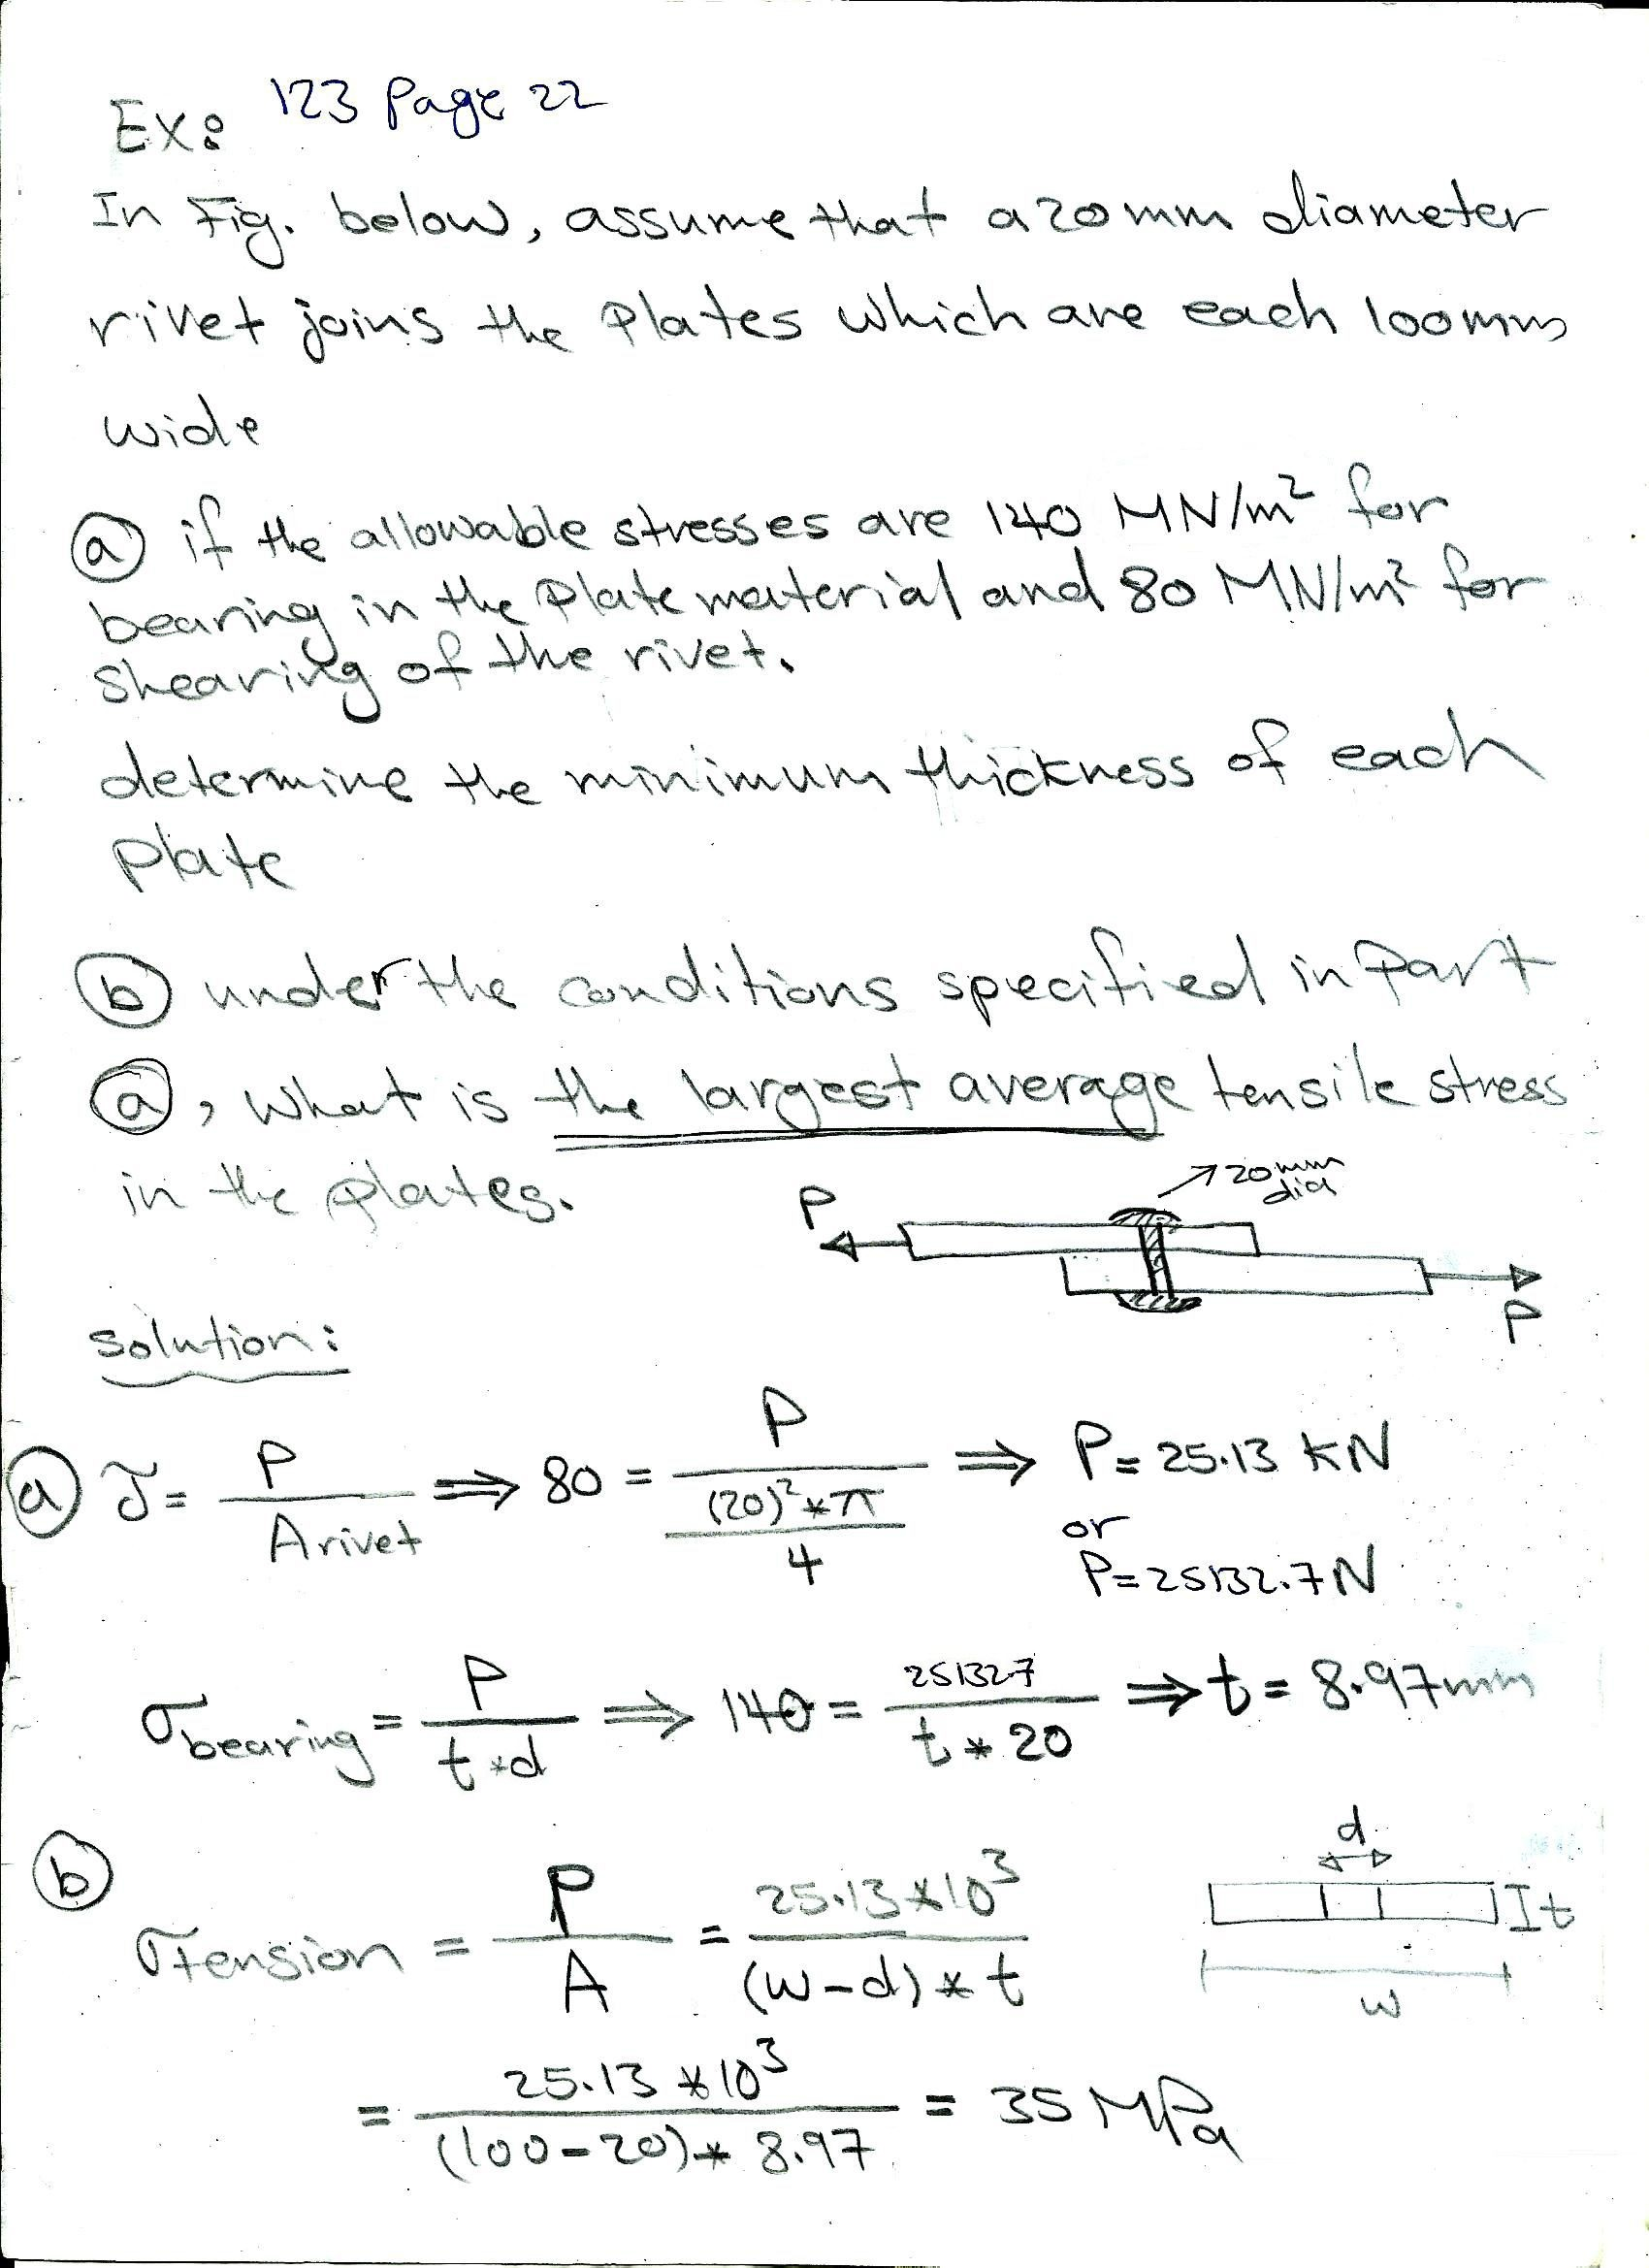 Ex: 123 Page 22
In Fig. below, assume that a 20 mm diameter
rivet joins the plates which are each 100 mm
wide
ⓐ if the allowable stresses are 140 MN/m² for
bearing in the plate material and 80 MN/m² for
shearing of the rivet.
determine the minimum thickness of each
plate
ⓑ under the conditions specified in part
ⓐ, what is the largest average tensile stress
in the plates.
P
20 mm
dia
P
solution:
ⓐ τ = P / A rivet ⟹ 80 = P / ((20)² * π / 4) ⟹ P = 25.13 kN
or
P = 25132.7 N
σ bearing = P / t * d ⟹ 140 = 25132.7 / t * 20 ⟹ t = 8.97 mm
ⓑ σ Tension = P / A = 25.13 * 10³ / (w - d) * t
d
t
w
= 25.13 * 10³ / (100 - 20) * 8.97 = 35 MPa